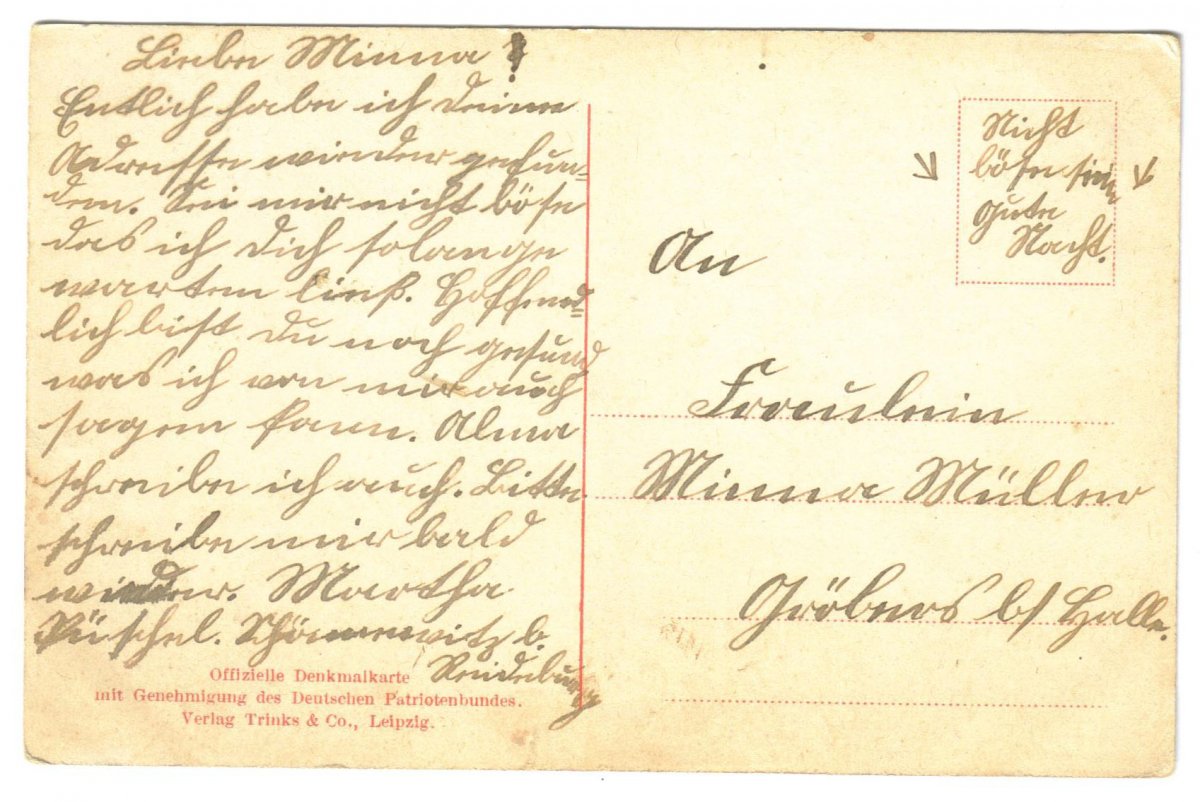 Liebe Minna!
Entlich habe ich deine
Adresse wieder gefun-
den. Sei mir nicht böse
das ich dich solange
warten ließ. Hoffend
lich bist du noch gesund
was ich von mir auch
sagen kann. Alma
schreibe ich auch. Bitte
schreibe mir bald
wieder. Martha
Püschel. Schönnewitz b.
Reideburg
Offizielle Denkmalkarte
mit Genehmigung des Deutschen Patriotenbundes.
Verlag Trinks & Co., Leipzig.
Nicht
böse sein
Gute
Nacht.
An
Fraulein
Minna Müller
Gröbers b/ Halle.